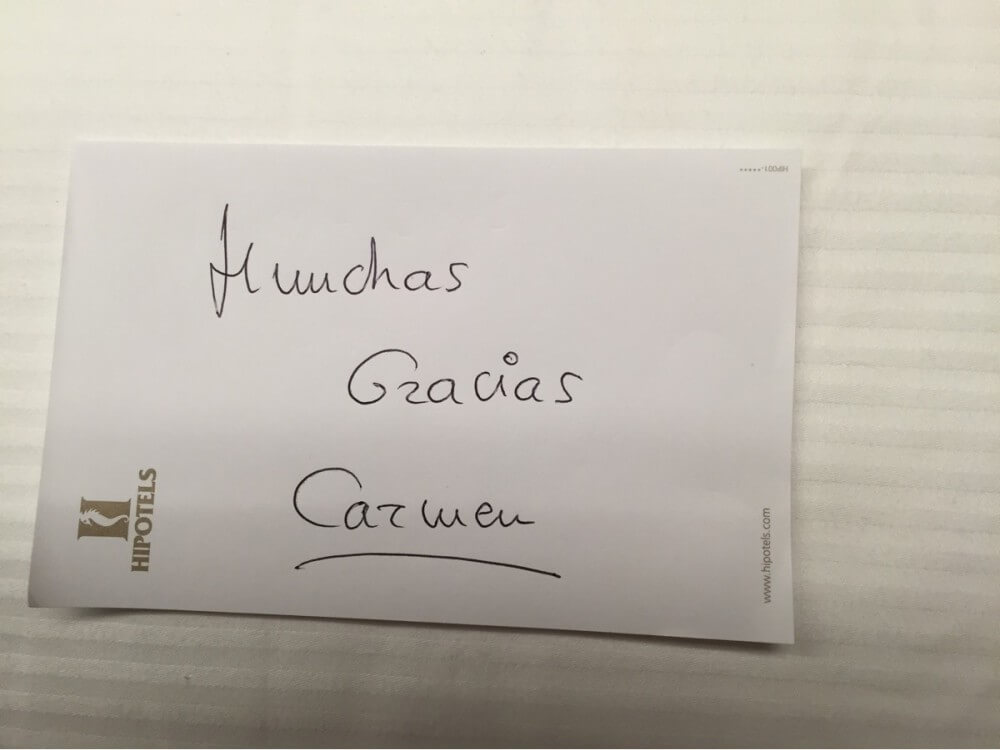 HIP001-*****
Munchas
Gracias
Carmen
HIPOTELS
www.hipotels.com